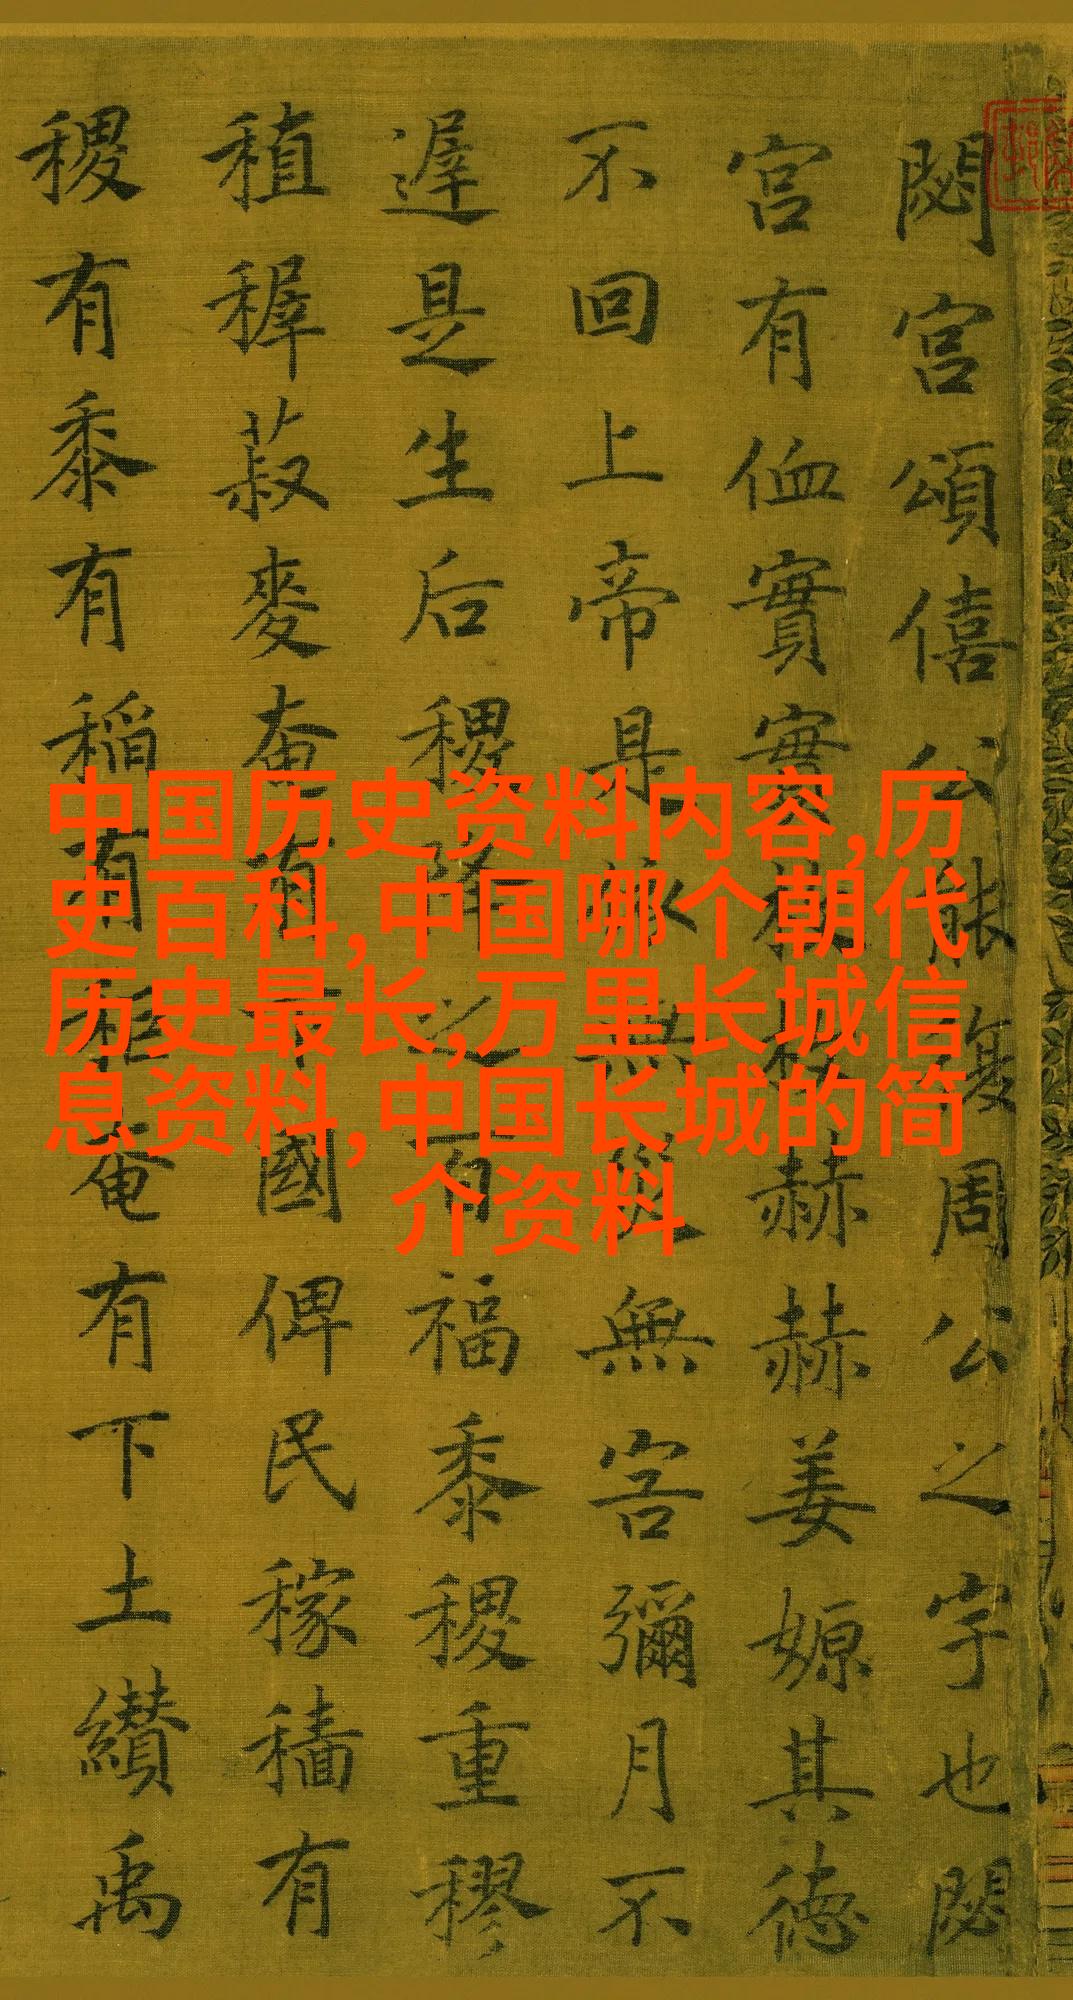 閟宮頌僖公能復周公之宇也閟
宮有侐實實枚枚赫赫姜嫄其德
不回上帝是依無災無害彌月不
遲是生后稷降之百福黍稷重穋
稙稺菽麥奄有下國俾民稼穡有
稷有黍有稻有秬奄有下土纘禹
中国历史资料内容,历
史百科,中国哪个朝代
历史最长,万里长城信
息资料,中国长城的简
介资料